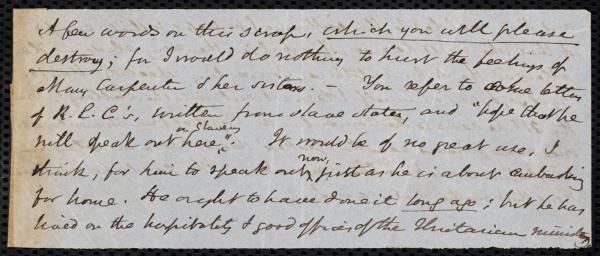 A few words on this scrap, which you will please
destroy; for I would do nothing to hurt the feelings of
Mary Carpenter & her sisters. — You refer to some letters
of R. L. C's, written from slave states, and "hope that he
will speak out here,".
on Slavery
It would be of no great use, I
think, for him to speak out,
now,
just as he is about embarking
for home. He ought to have done it long ago; but he has
lived on the hospitality & good offices of the Unitarian ministers,